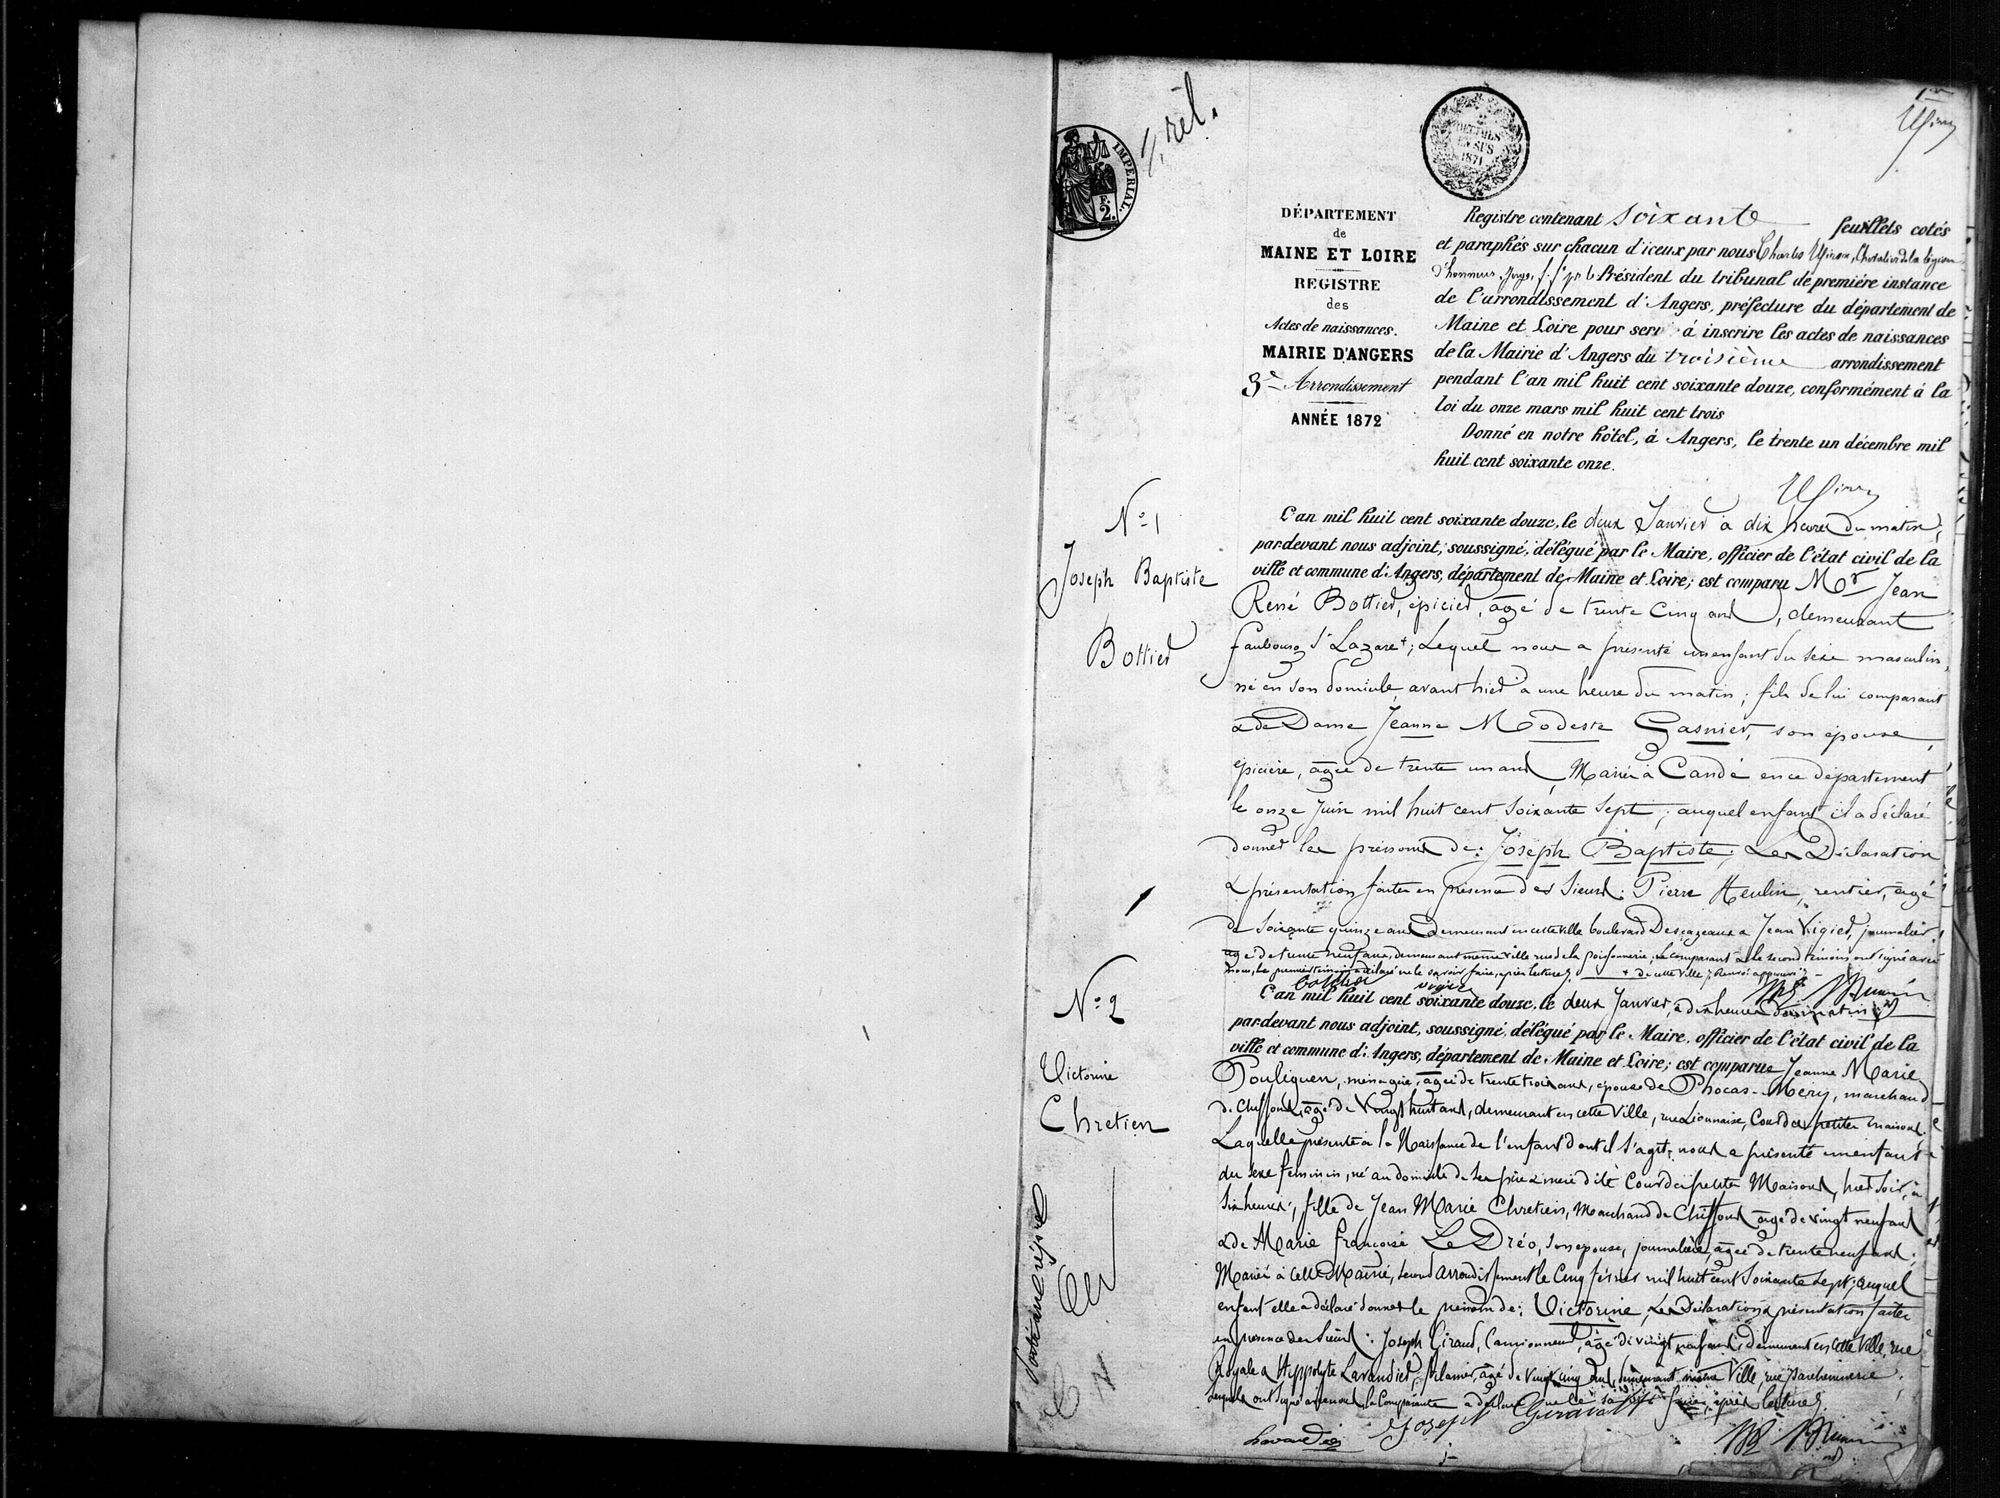 1er
rel.
IMPERIAL.
F.
2.
2
DECIMES
EN SUS
1871
DÉPARTEMENT
de
MAINE ET LOIRE
REGISTRE
des
Actes de naissances.
MAIRIE D'ANGERS
3e Arrondissement
ANNÉE 1872
Registre contenant soixante feuillets cotés
et paraphés sur chacun d'iceux par nous Charles Chevalier de la légion
d'honneur, Juge, f. f. pr le Président du tribunal de première instance
de l'arrondissement d'Angers, préfecture du département de
Maine et Loire pour servi à inscrire les actes de naissances
de la Mairie d'Angers du troisième arrondissement
pendant l'an mil huit cent soixante douze, conformément à la
loi du onze mars mil huit cent trois
Donné en notre hôtel, à Angers, le trente un décembre mil
huit cent soixante onze.
No 1
Joseph Baptiste
Bottier
L'an mil huit cent soixante douze, le deux Janvier à dix heures du matin,
pardevant nous adjoint, soussigné, délégué par le Maire, officier de l'état civil de la
ville et commune d'Angers, département de Maine et Loire; est comparu Mr Jean
René Bottier, épicier, âgé de trente cinq ans, demeurant
faubourg St Lazare+; Lequel nous a présenté un enfant du sexe masculin,
né en son domicile, avant hier à une heure du matin; fils de lui comparant
& de Dame Jeanne Modeste Gasnier, son épouse,
épicière, âgée de trente un ans, Mariés à Candé en ce département
le onze Juin mil huit cent soixante sept; auquel enfant il a déclaré
donner les prénoms de: Joseph Baptiste; Les Déclaration
& présentation faites en présence des Sieurs: Pierre Heulin, rentier, âgé
de soixante quinze ans demeurant en cette ville boulevard Descazeaux & Jean Vigier, journalier,
âgé de trente neuf ans, demeurant même ville rue de la poissonnerie; Le comparant & le second témoins ont signé avec
nous, Le premier témoin a déclaré ne le savoir faire, après lecture. + de cette ville; Renvoi approuvé
Bottier vigier
No 2
Victorine
Chretien
L'an mil huit cent soixante douze, le deux Janvier, à dix heures du matin
pardevant nous adjoint, soussigné, délégué par le Maire, officier de l'état civil de la
ville et commune d'Angers, département de Maine et Loire; est comparue Jeanne Marie
Pouliquen, ménagère, âgée de trente trois ans, épouse de Phocas-Méry, marchand
de chiffons, âgé de vingt huit ans, demeurant en cette ville, rue Lionnaise, Cour des petites maisons.
Laquelle présente à la Naissance de l'enfant dont il s'agit, nous a présenté un enfant
du sexe féminin, né au domicile de ses père & mère dite Cour des petites Maisons, hier soir, à
six heures; fille de Jean Marie Chretien, Marchand de Chiffons âgé de vingt neuf ans
& de Marie françoise Le Dréo, son épouse, journalière, âgée de trente neuf ans;
Mariés à cette Mairie, second arrondissement le Cinq février mil huit cent soixante sept; auquel
enfant elle a déclaré donner le prénom de: Victorine, Les Déclaration & présentation faites
en présence des Sieurs: Joseph Giraud, Camionneur, âgé de vingt neuf ans, demeurant en cette ville, rue
Royale & Hippolyte Lavandier, âgé de vingt cinq ans, demeurant même Ville, rue Parcheminerie;
lesquels ont signé avec nous, la Comparante a déclaré ne le savoir faire, après lecture.
Joseph Giraud